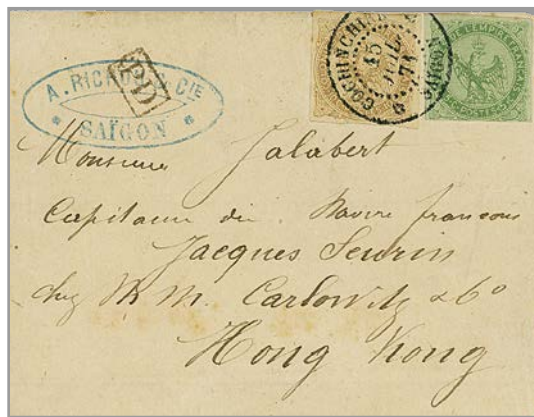 A. RICHON & CIE
SAÏGON
PD
COCHINCHINE
SAIGON
DE L'EMPIRE FRANÇAIS
POSTES
Monsieur Jalabert
Capitaine du Navire francais
Jacques Seurin
chez M.M. Carlowitz & Co
Hong Kong